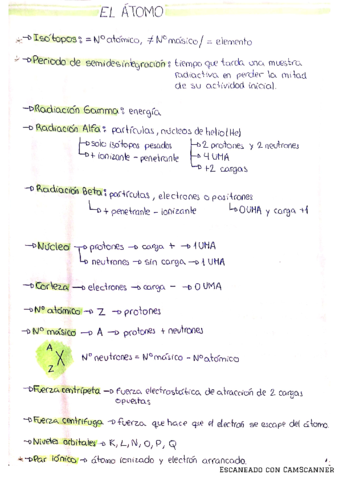 EL ÁTOMO
* → Isótopos: = Nº atómico, ≠ Nº másico / = elemento
* → Periodo de semidesintegración: tiempo que tarda una muestra
radiactiva en perder la mitad
de su actividad inicial.
→ Radiación Gamma: energía
→ Radiación Alfa: partículas, núcleos de helio (He)
→ solo isótopos pesados → 2 protones y 2 neutrones
→ + ionizante - penetrante → 4 UMA
→ +2 cargas
→ Radiación Beta: partículas, electrones o positrones
→ + penetrante - ionizante → 0 UMA y carga ±1
→ Núcleo → protones → carga + → 1 UMA
→ neutrones → sin carga → 1 UMA
→ Corteza → electrones → carga - → 0 UMA
→ Nº atómico → Z → protones
→ Nº másico → A → protones + neutrones
A
X Nº neutrones = Nº másico - Nº atómico
Z
→ Fuerza centrípeta → fuerza electrostática de atracción de 2 cargas
opuestas
→ Fuerza centrífuga → fuerza que hace que el electrón se escape del átomo.
→ Niveles orbitales → K, L, N, O, P, Q
* → Par iónico → átomo ionizado y electrón arrancado.
ESCANEADO CON CAMSCANNER